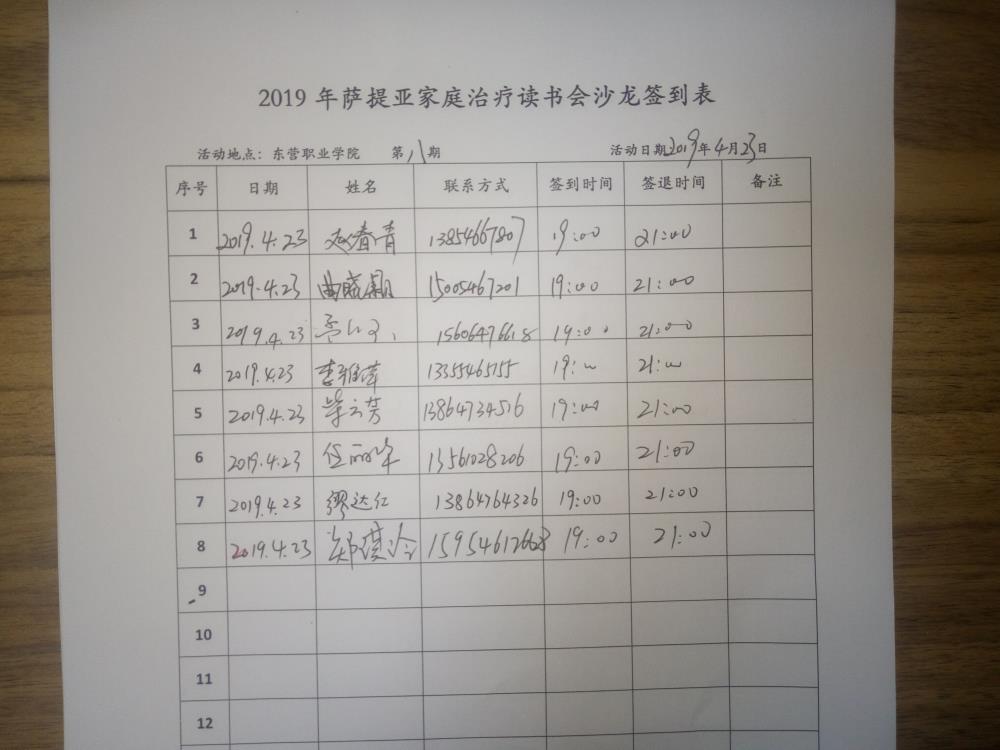 2019 年萨提亚家庭治疗读书会沙龙签到表
活动地点：东营职业学院 第八期 活动日期2019年4月23日
序号 日期 姓名 联系方式 签到时间 签退时间 备注
1 2019.4.23 赵春青 13854667807 19:00 21:00
2 2019.4.23 曲晓颖 15005467201 19:00 21:00
3 2019.4.23 15606476618 19:00 21:00
4 2019.4.23 李雅萍 13355465755 19:00 21:00
5 2019.4.23 柴云芳 13864734516 19:00 21:00
6 2019.4.23 任丽华 13561028206 19:00 21:00
7 2019.4.23 缪达红 13864764326 19:00 21:00
8 2019.4.23 郑琪冷 15954612668 19:00 21:00
9
10
11
12